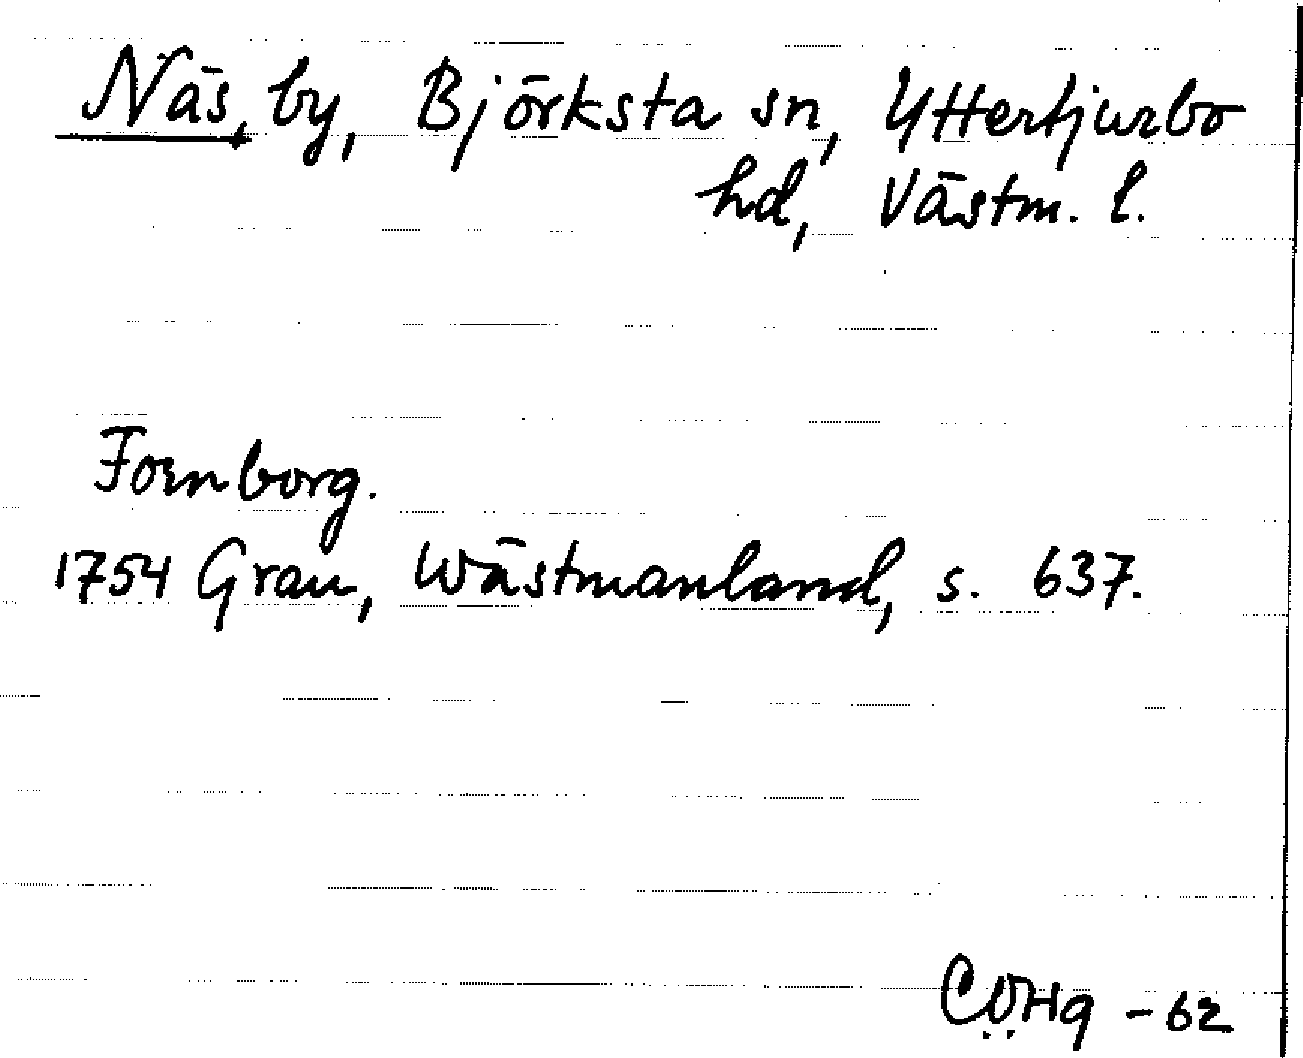 Näs, by, Björksta sn, Yttertjurbo
hd, Västm. l.
Fornborg.
1754 Grau, Wästmanland, s. 637.
-62